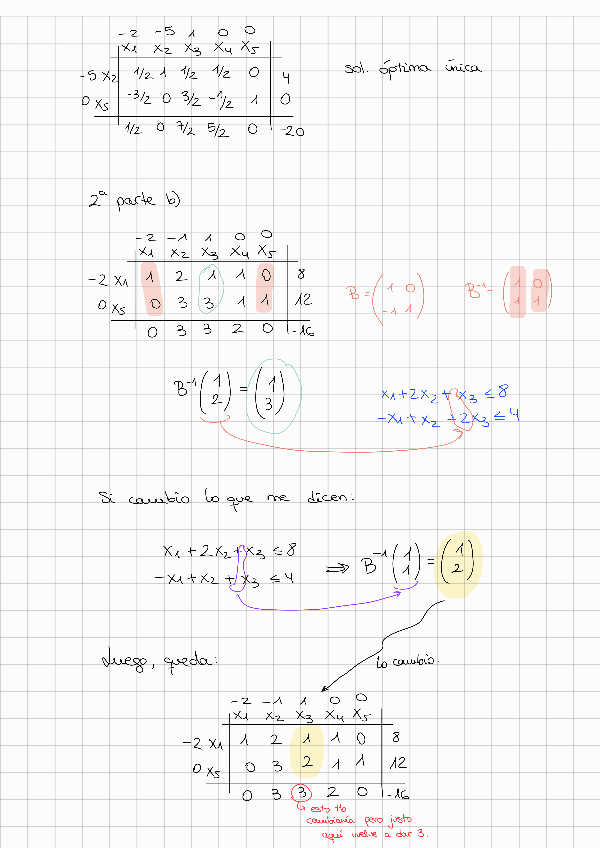 -2 -5 1 0 0
x1 x2 x3 x4 x5
-5 x2 1/2 1 1/2 1/2 0 4
0 x5 -3/2 0 3/2 -1/2 1 0
1/2 0 7/2 5/2 0 -20
sol. óptima única
2ª parte b)
-2 -1 1 0 0
x1 x2 x3 x4 x5
-2 x1 1 2 1 1 0 8
0 x5 0 3 3 1 1 12
0 3 3 2 0 -16
B = (1 0
-1 1)
B⁻¹ = (1 0
1 1)
B⁻¹ (1
2) = (1
3)
x1 + 2x2 + x3 ≤ 8
-x1 + x2 + 2x3 ≤ 4
Si cambio lo que me dicen:
x1 + 2x2 + x3 ≤ 8
-x1 + x2 + x3 ≤ 4
⇒ B⁻¹ (1
1) = (1
2)
Luego, queda:
lo cambio.
-2 -1 1 0 0
x1 x2 x3 x4 x5
-2 x1 1 2 1 1 0 8
0 x5 0 3 2 1 1 12
0 3 3 2 0 -16
↳ esto tb
cambiaría pero justo
aquí vuelve a dar 3.